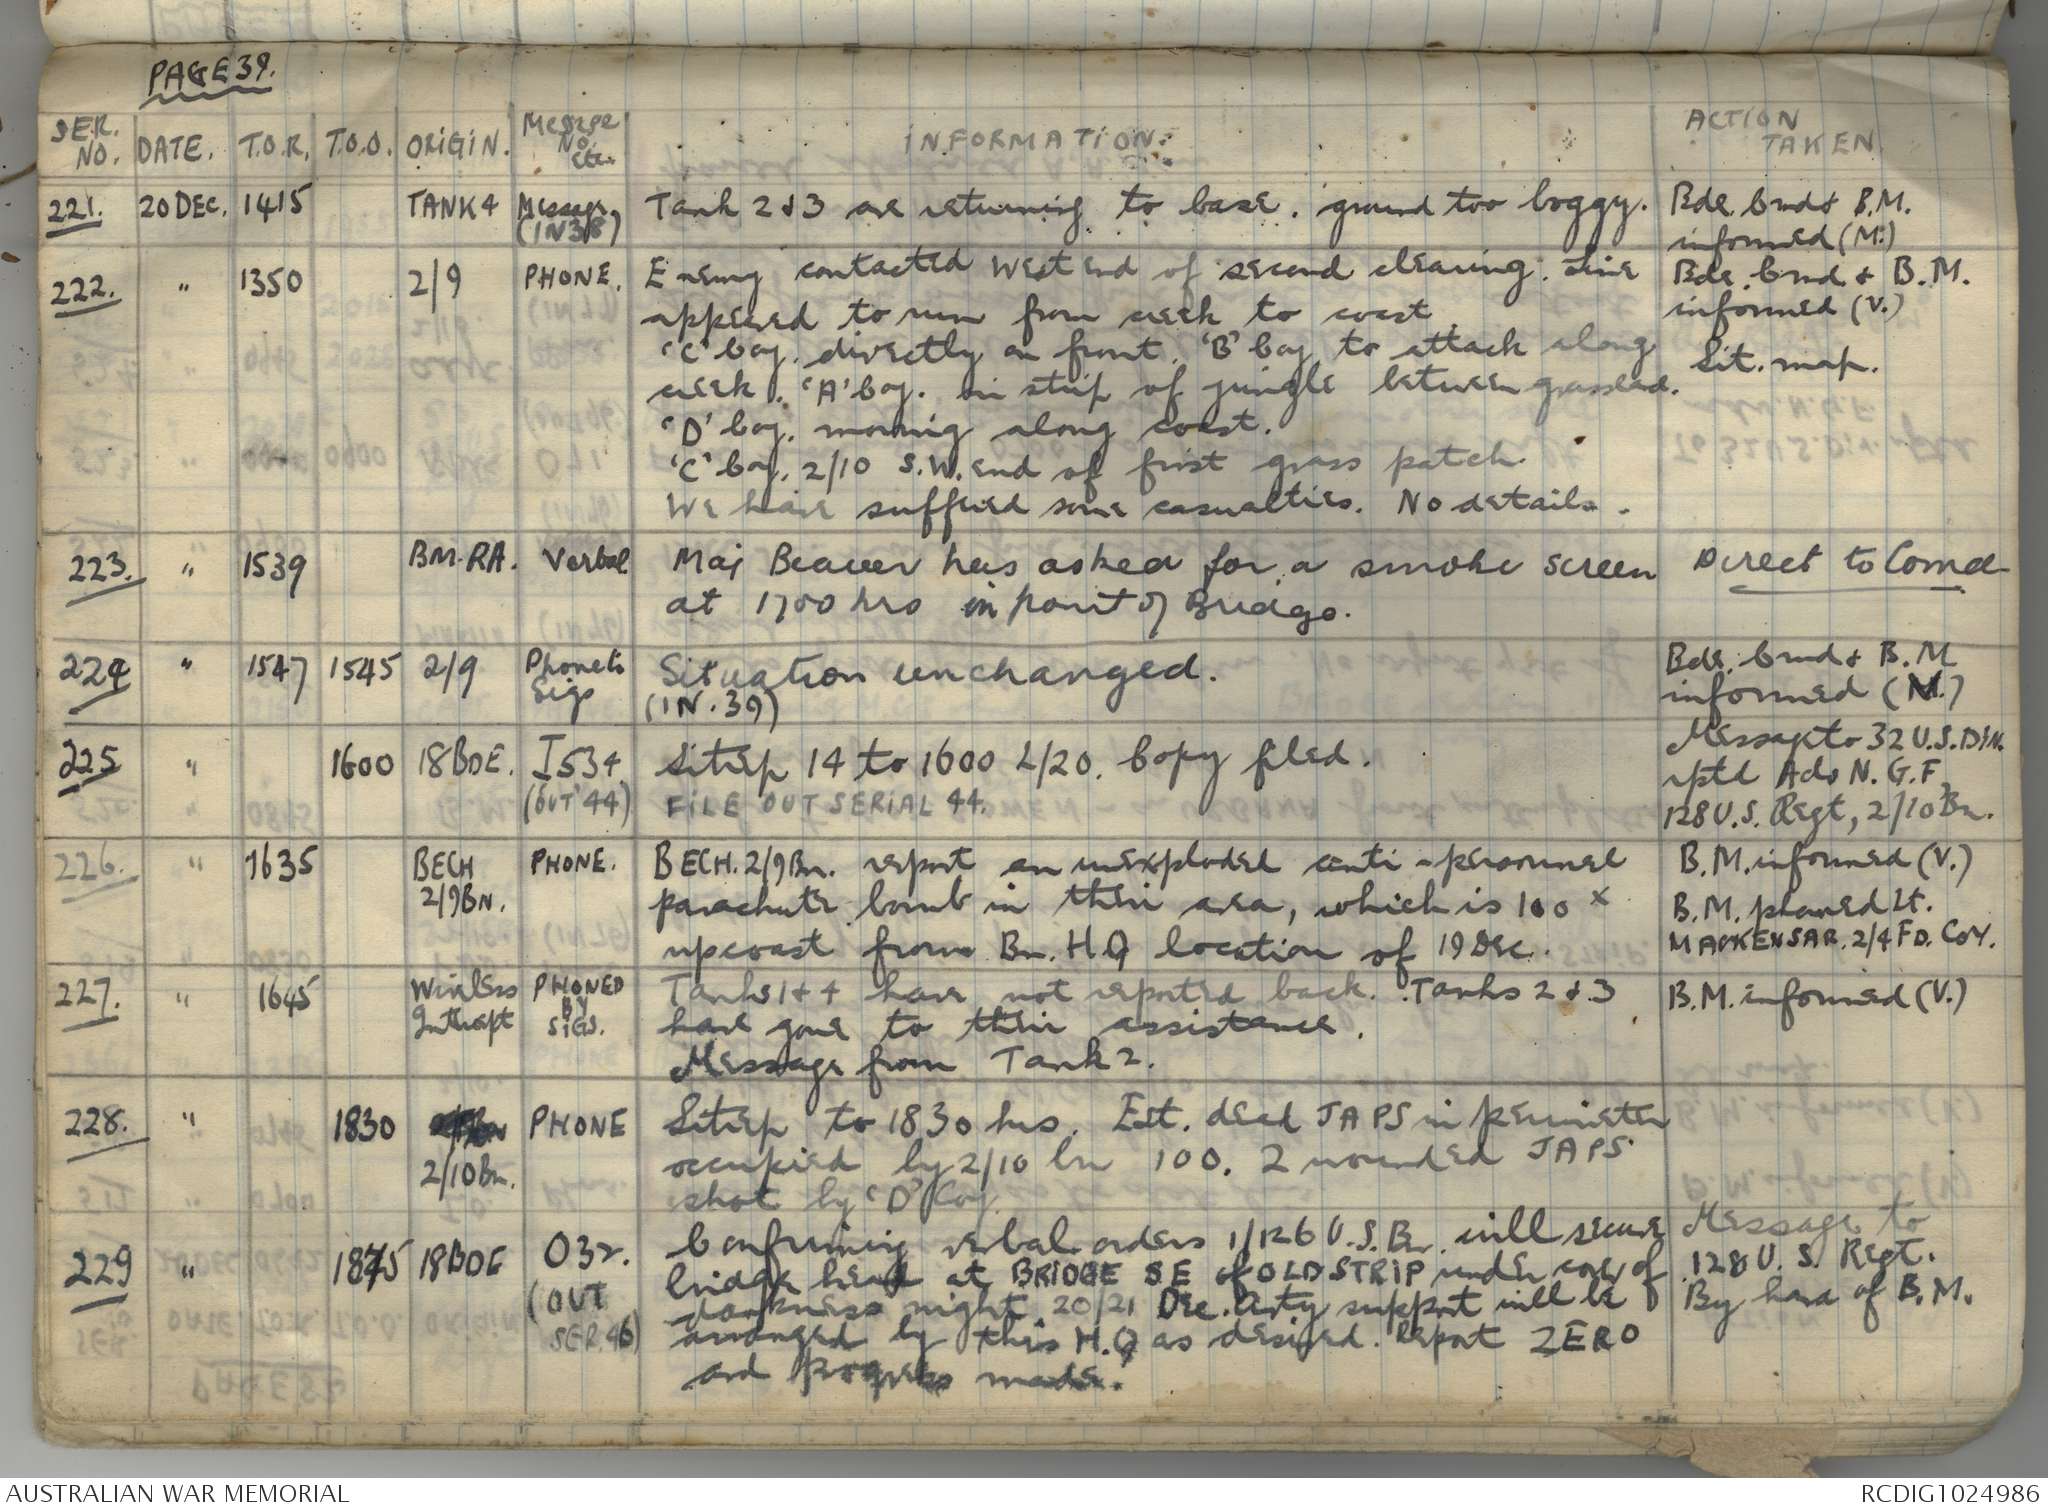 PAGE 39.
SER. NO. DATE. T.O.R. T.O.O. ORIGIN. Message No. etc. INFORMATION. ACTION TAKEN.
221. 20 DEC. 1415 TANK 4 Message (IN 38) Tank 2 & 3 are returning to base. ground too boggy. Bde. Cmd & B.M.
informed (M.)
222. " 1350 2/9 PHONE. Enemy contacted West end of second clearing. Line Bde. Cmd & B.M.
appeared to run from creek to coast informed (V.)
'C' Coy. directly on front. 'B' Coy to attack along Sit. map.
creek. 'A' Coy. in strip of jungle between grassland.
'D' Coy. moving along coast.
'C' Coy. 2/10 S.W. end of first grass patch.
We have suffered some casualties. No details.
223. " 1539 BM-RA. Verbal Maj Beaver has asked for a smoke screen Direct to Comd
at 1700 hrs in front of Bridge.
224 " 1547 1545 2/9 Phone to Sigs Situation unchanged. Bde. Cmd & B.M
(IN. 39) informed (M.)
225 " 1600 18 BDE. I534 (OUT 44) Sitrep 14 to 1600 L/20. Copy filed. Message to 32 U.S. DIV.
FILE OUT SERIAL 44. rptd Adv N.G.F,
128 U.S. Regt, 2/10 Bn.
226. " 1635 BECH 2/9 BN. PHONE. BECH. 2/9 Bn. report an unexploded anti-personnel B.M. informed (V.)
parachute bomb in their area, which is 100 x B.M. phoned Lt.
upcoast from Bn. HQ location of 19 Dec. MACKENSAR. 2/4 FD. COY.
227. " 1645 Wireless Intercept PHONED BY SIGS. Tanks 1 & 4 have not reported back. Tanks 2 & 3 B.M. informed (V.)
have gone to their assistance.
Message from Tank 2.
228. " 1830 2/10 Bn. PHONE Sitrep to 1830 hrs. Est. dead JAPS in perimeter
occupied by 2/10 bn 100. 2 wounded JAPS
shot by 'D' Coy.
229 " 1845 18 BDE O32. (OUT SER. 46) Confirming verbal orders 1/126 U.S. Bn. will secure Message to
bridge head at BRIDGE SE of OLD STRIP under cover of 128 U.S. Regt.
darkness night 20/21 Dec. Arty support will be By hand of B.M.
arranged by this H.Q as desired. Report ZERO
and progress made.
AUSTRALIAN WAR MEMORIAL RCDIG1024986